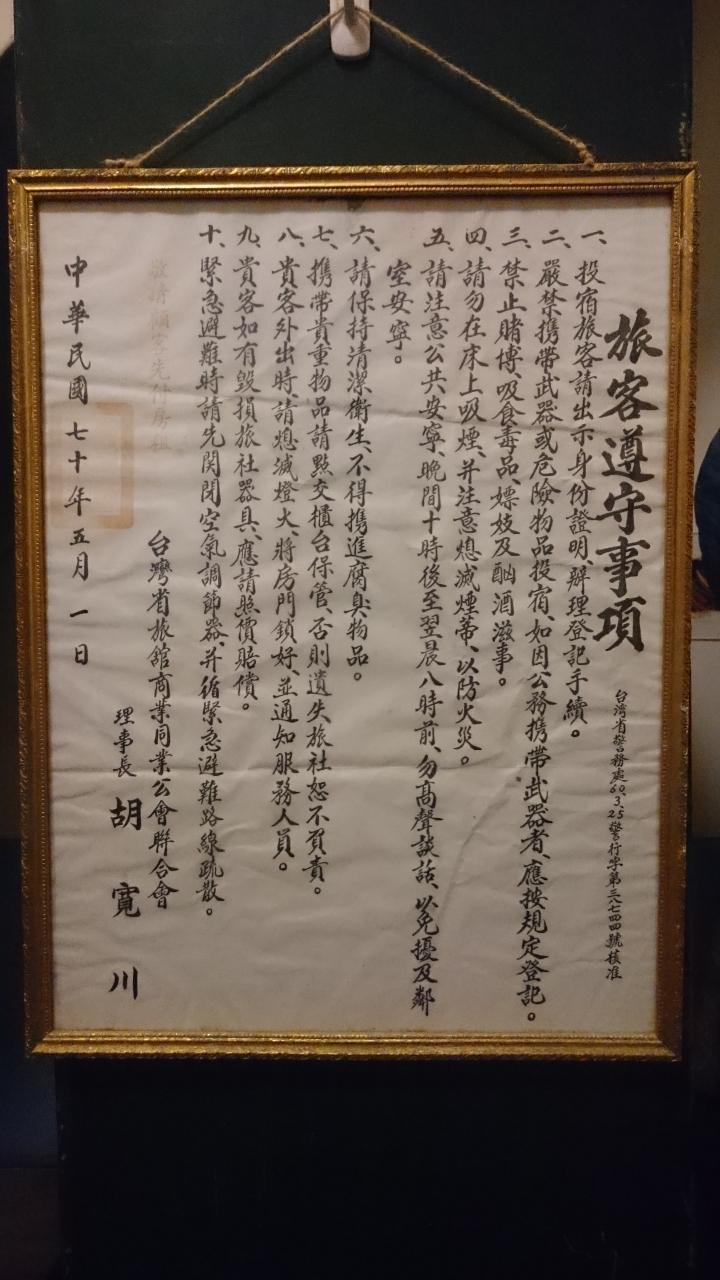 旅客遵守事項
台湾省警務處60.3.25警行字第三八七四四號核准
一、投宿旅客請出示身份證明、辦理登記手續。
二、嚴禁携帶武器或危險物品投宿、如因公務携帶武器者、應按規定登記。
三、禁止賭博、吸食毒品、嫖妓及酗酒滋事。
四、請勿在床上吸煙、并注意熄滅煙蒂、以防火災。
五、請注意公共安寧、晚間十時後至翌晨八時前、勿高聲談話、以免擾及鄰
室安寧。
六、請保持清潔衛生、不得携進腐臭物品。
七、携帶貴重物品請點交櫃台保管、否則遺失旅社恕不負責。
八、貴客外出時、請熄滅燈火、將房門鎖好、並通知服務人員。
九、貴客如有毀損旅社器具、應請照價賠償。
十、緊急避難時請先関閉空氣調節器、并循緊急避難路線疏散。
敬請顧客先付房租
台灣省旅館商業同業公會聯合會
理事長 胡寬川
中華民國七十年五月一日